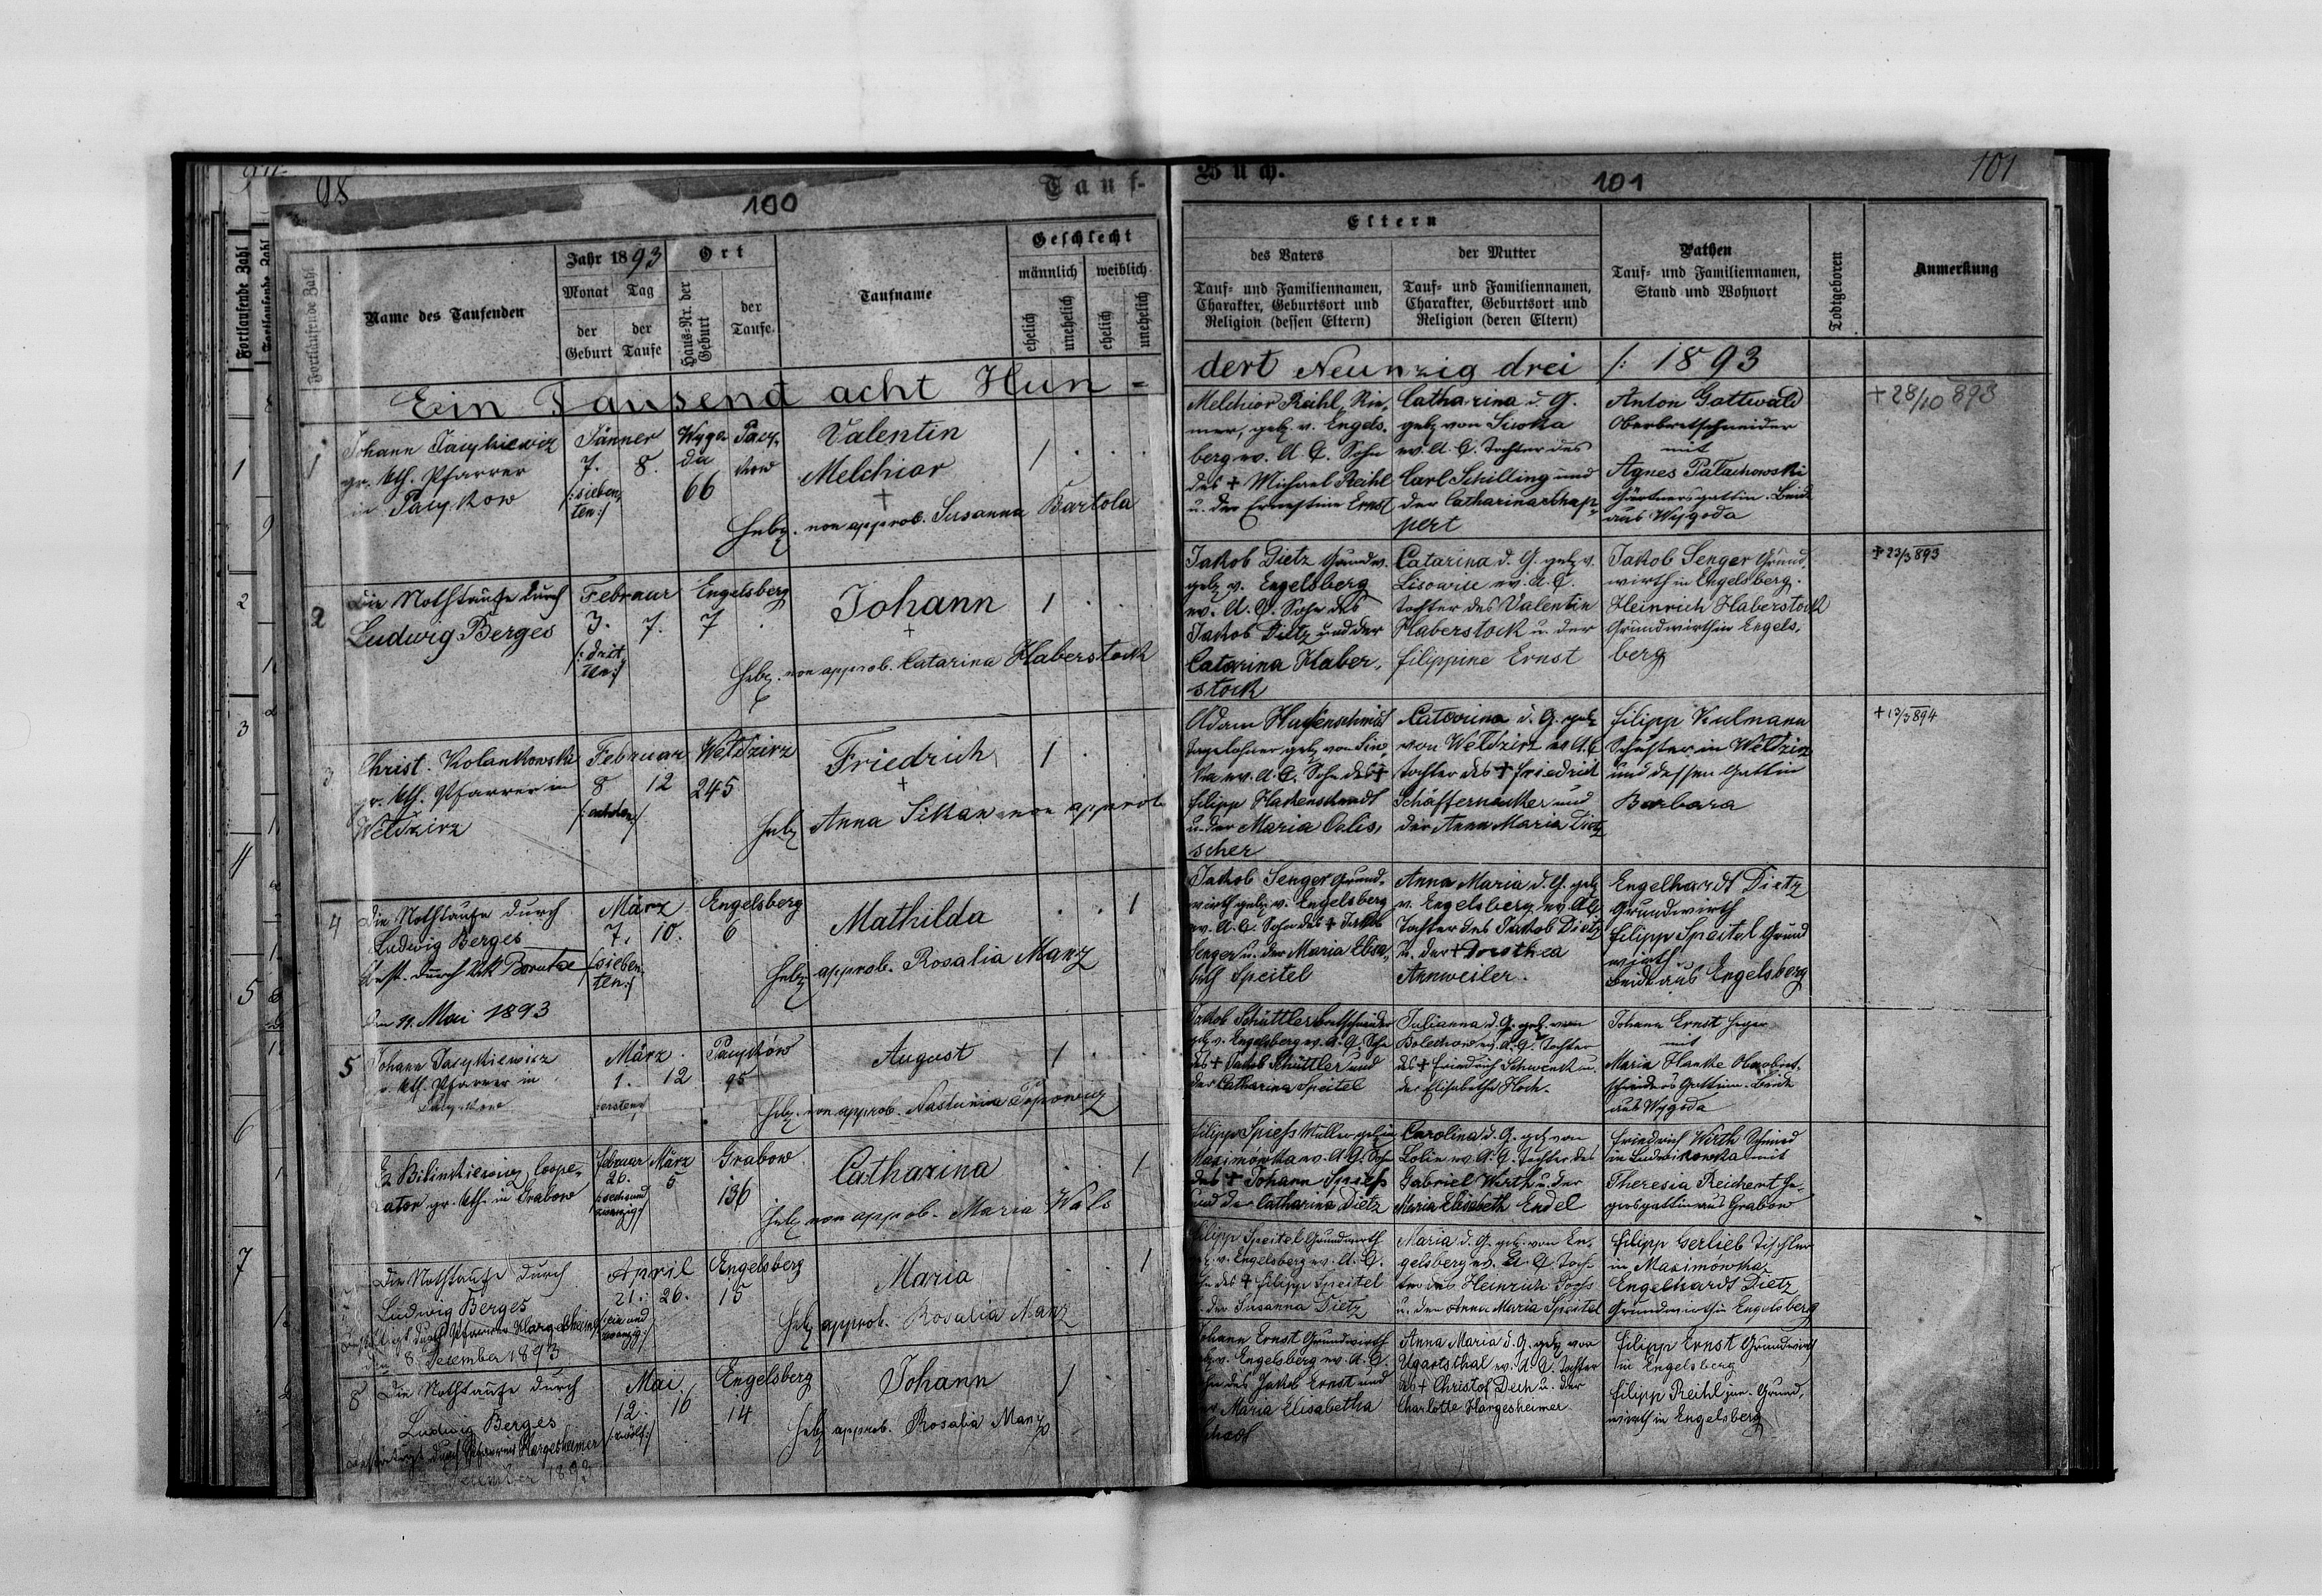 98
100
Tauf-
Fortlaufende Zahl
Name des Taufenden
Jahr 1893
Monat Tag
der Geburt
der Taufe
Ort
Haus-Nr. der Geburt
der Taufe
Taufname
Geschlecht
männlich weiblich
ehelich unehelich ehelich unehelich
Ein Tausend acht Hun-
1
Johann
gr. kth. Pfarrer
in Pacykow
Jänner
7. 8.
/:sieben
ten:/
Wygo
da
66
Pacy
kow
Valentin
Melchior
+
1
Hebg. non approb. Susanna Bartola
2
Die Nothtaufe durch
Ludwig Berges
Februar
3. 7.
/:drit
ten:/
Engelsberg
7
Johann
+
1
Hebg. non approb. Catarina Haberstock
3
Christ. Kolankowski
gr. kth. Pfarrer in
Weldzirz
Februar
8 12
/:achten:/
Weldzirz
245
Friedrich
+
1
Hebg Anna Sikan non approb
4
Die Nothtaufe durch
Ludwig Berges
Best. durch Vik Borutze
den 11. Mai 1893
März
7. 10.
/:sieben
ten:/
Engelsberg
6
Mathilda
1
Hebg approb. Rosalia Manz
5
Johann
gr. kth. Pfarrer in
Pacykow
März
1. 12
/:ersten:/
Pacyków
95
August
1
Hebg. non approb.
Cooperator gr. kth. in Grabow
Februar März
26. 5
/:sechsund
zwanzig:/
Grabow
136
Catharina
1
Hebg non approb. Maria Wals
Die Nothtaufe durch
Ludwig Berges
Bestätigt durch Pfarrer Hargesheimer
den 8. Dezember 1893
April
21. 26.
/:ein und
zwanzig:/
Engelsberg
15
Maria
1
Hebg approb. Rosalia Manz
8
Die Nothtaufe durch
Ludwig Berges
Bestätigt durch Pfarrer Hargesheimer
Dezember 1893
Mai
12. 16
/:zwölf:/
Engelsberg
14
Johann
1
Hebg approb. Rosalia Manz
Buch.
101
101
Eltern
des Vaters
Tauf- und Familiennamen,
Charakter, Geburtsort und
Religion (dessen Eltern)
der Mutter
Tauf- und Familiennamen,
Charakter, Geburtsort und
Religion (deren Eltern)
Pathen
Tauf- und Familiennamen,
Stand und Wohnort
Todtgeboren
Anmerkung
dert Neunzig drei /: 1893
Melchior Reihl, Rie-
mer, geb. v. Engels-
berg ev. A. C. Sohn
des + Michael Reihl
u. der Ernestine Ernst
Catharina d. G.
geb von
ev. A. C. Tochter des
Carl Schilling und
der Catharina Schap-
pert
Anton Gottwald
Oberbretschneider
mit
Agnes Palachowski
Gärtnersgattin. Beide
aus Wygoda
+ 28/10 893
Jakob Dietz Grundw.
geb v. Engelsberg
ev. A. C. Sohn des
Jakob Dietz und der
Catarina Haber-
stock
Catarina d. G. geb v.
Lisowie ev. A. C.
Tochter des Valentin
Haberstock u. der
Filippine Ernst
Jakob Senger Grund
wirth in Engelsberg.
Heinrich Haberstock
Grundwirth in Engels-
berg
+ 23/3 893
Adam
Tagelöhner geb von
ev. A. C. Sohn des +
Filipp
u. der Maria
Catarina d. G. geb
von Weldzirz ev A. C
Tochter des + Friedrich
Schäffernecker und
der Anna Maria Dietz
Filipp Kulmann
Schuster in Weldzirz
und dessen Gattin
Barbara
+ 13/3 894
Jakob Senger Grund-
wirth geb v. Engelsberg
ev. A. C. Sohn des + Jakob
Senger u. der Maria Elisa-
beth Speitel
Anna Maria d. G. geb
v. Engelsberg ev. A. C.
Tochter des Jakob Dietz
u. der + Dorothea
Annweiler.
Engelhardt Dietz
Grundwirth
Filipp Speitel Grund
wirth
Beide aus Engelsberg
Jakob Schüttler Bretschneider
geb v. Engelsberg ev. A. C. Sohn
des + Jakob Schüttler und
der Catharina Speitel
Julianna d. G. geb. von
Bolechow ev. A. C. Tochter
des + Friedrich Schwenk u.
der Elisabetha Hoch.
Johann Ernst Heger
mit
Maria Hanke Oberbret-
schneiders Gattin. Beide
aus Wygoda
Filipp Spiess Müller geb in
Maximówka ev. A. C. Sohn
des + Johann Spiess
und der Catharina Dietz
Carolina d. G. geb von
ev. A. C. Tochter des
Gabriel Wirth u. der
Maria Elisabeth Endel
Friedrich Wirth Schmied
in Ludwikowka mit
Theresia Reichert He-
gersgattin aus Grabow
Filipp Speitel Grundwirth
geb. v. Engelsberg ev. A. C.
Sohn des + Filipp Speitel
u. der Susanna Dietz
Maria d. G. geb. von En-
gelsberg ev. A. C. Toch-
ter des Heinrich
u. der Anna Maria Speitel
Filipp Gerlieb Tischler
in Maximówka
Engelhardt Dietz
Grundwirth in Engelsberg
Johann Ernst Grundwirth
geb v. Engelsberg ev. A. C.
Sohn des Jakob Ernst und
der Maria Elisabetha
Anna Maria d. G. geb von
Ugartsthal ev. A. C. Tochter
des + Christof Dech u. der
Charlotte Hargesheimer
Filipp Ernst Grundwirth
in Engelsberg
Filipp Reihl jun. Grund-
wirth in Engelsberg